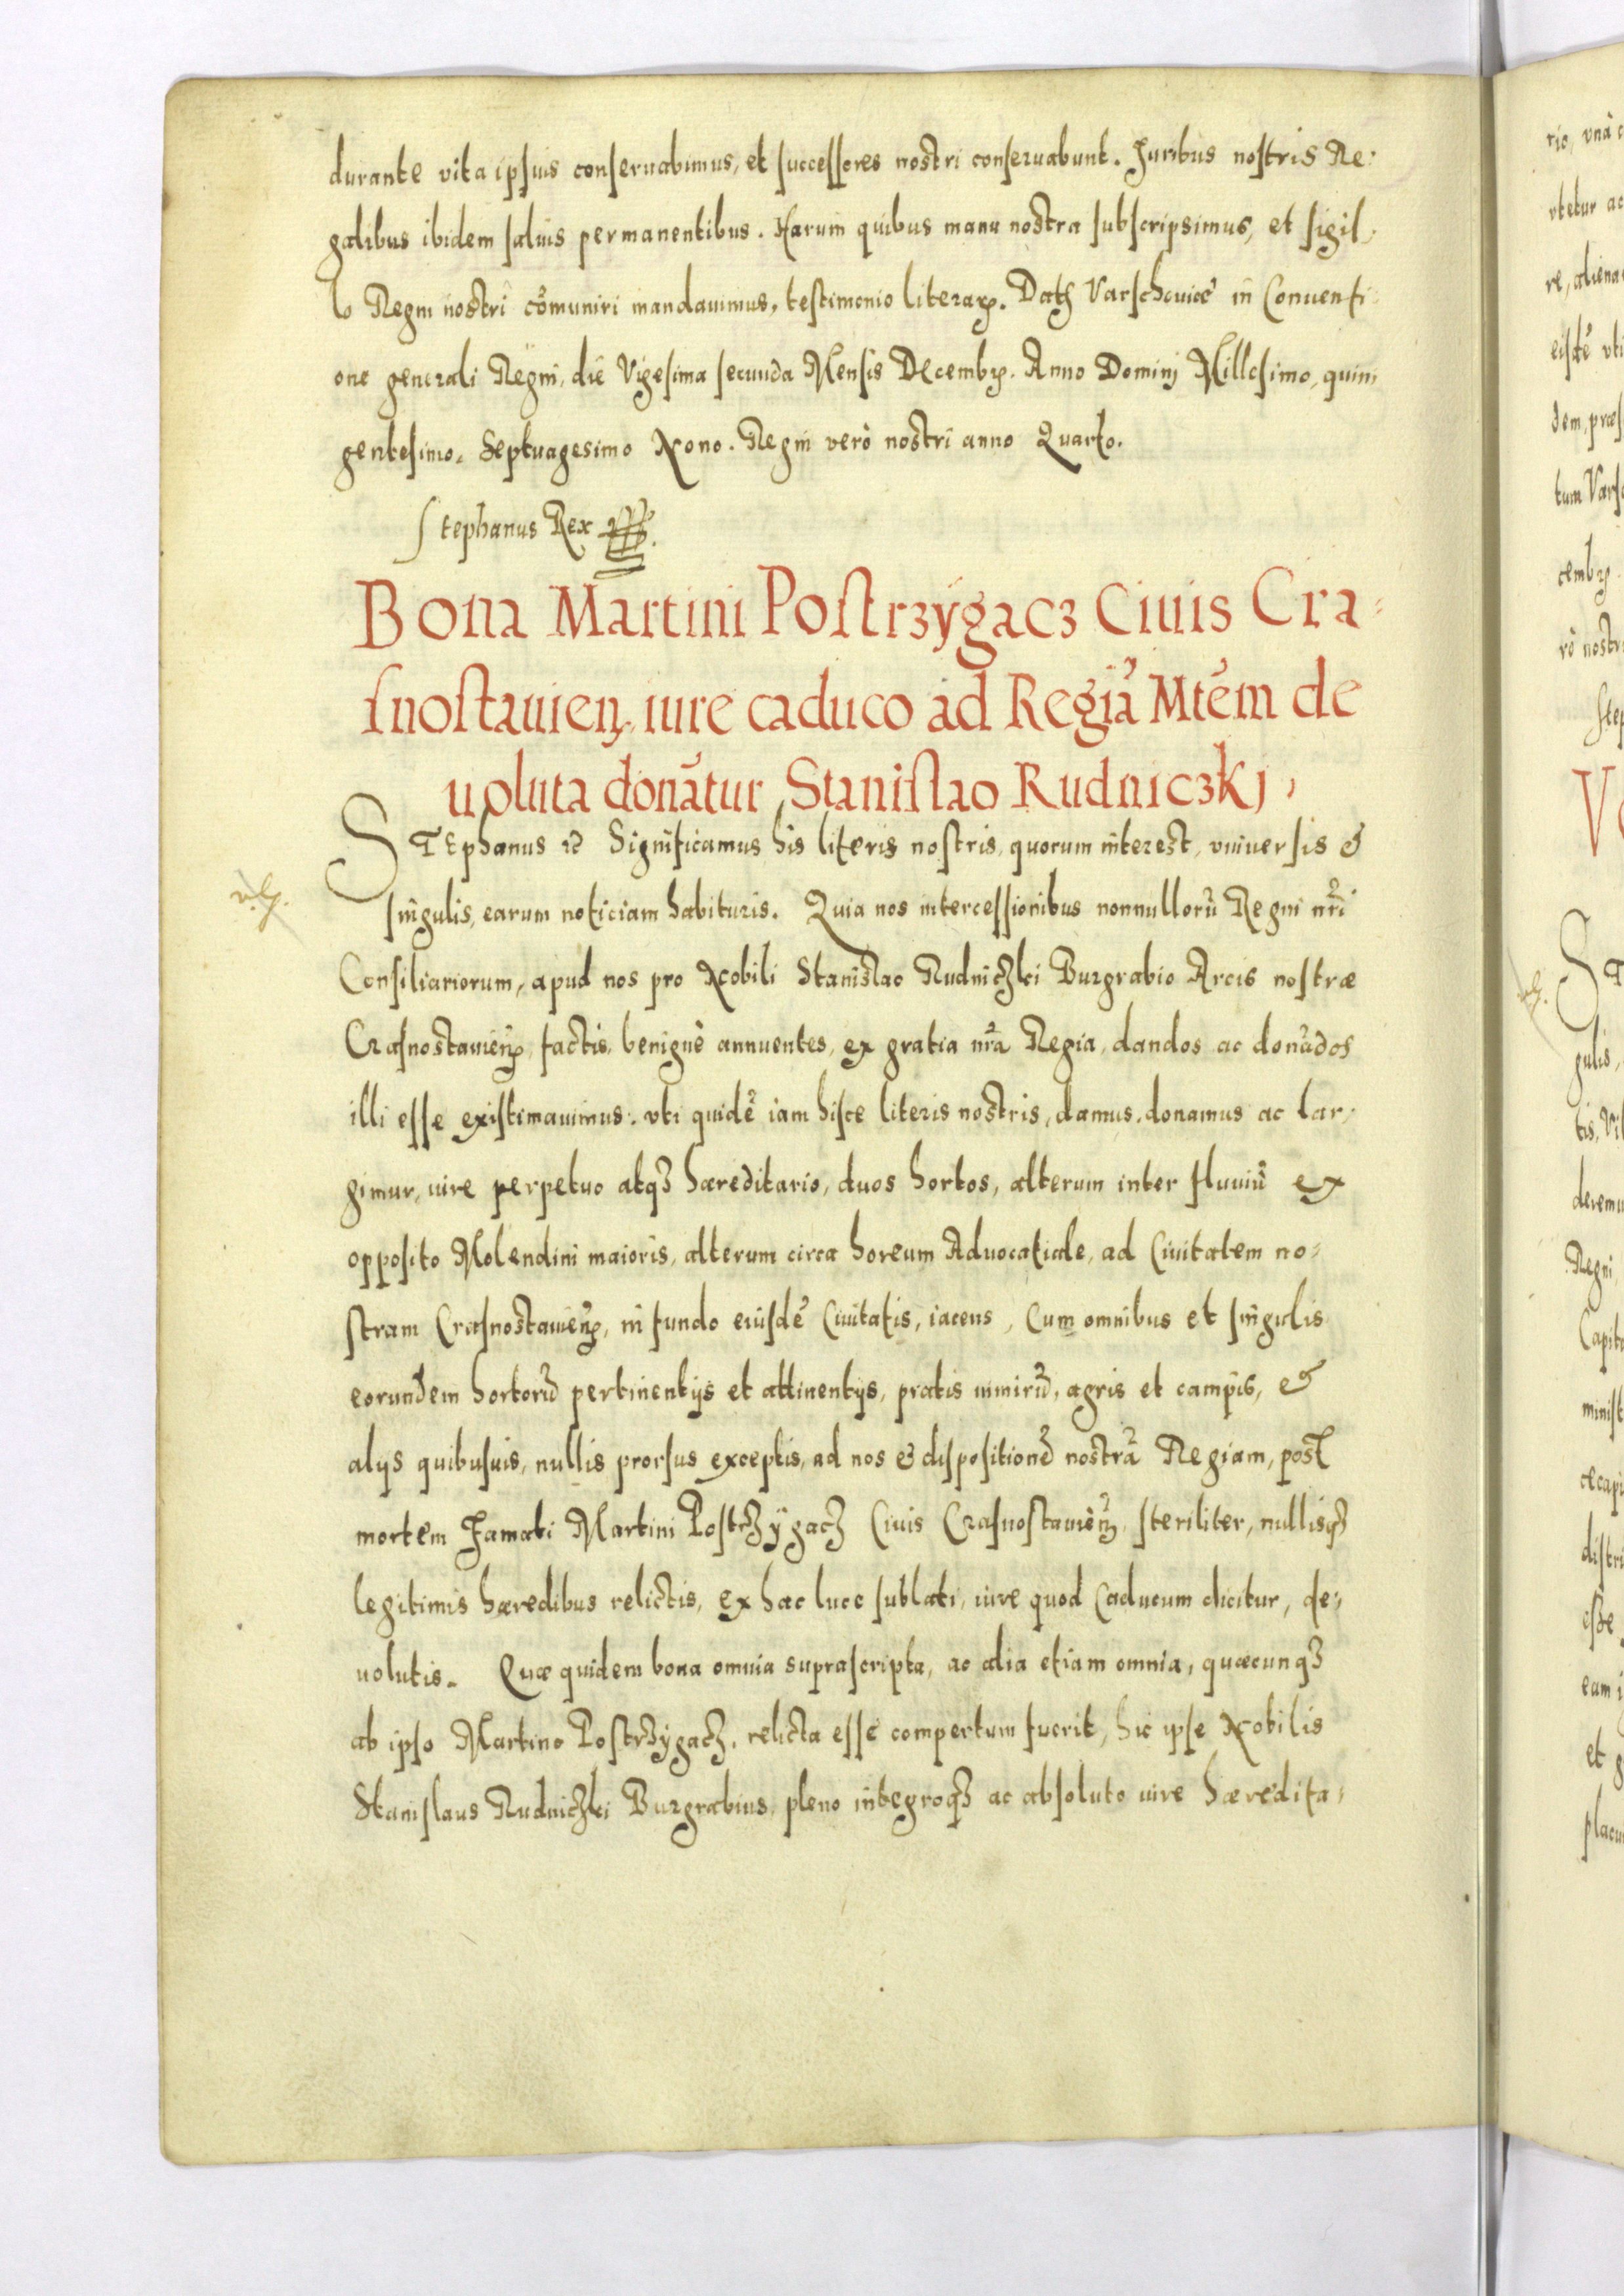 durante vita ipsuis conseruabimus, et successores nostri conseruabunt. Iuribus nostris Re-
galibus ibidem saluis permanentibus. Harum quibus manu nostra subscripsimus, et sigil-
lo Regni nostri cõmuniri mandauimus, testimonio literarꝝ. Datꝭ Varschouiæ in Conuenti
one generali Regni, die Vigesima secunda Mensis Decembꝝ. Anno Dominj Millesimo, quin-
gentesimo. Septuagesimo Nono. Regni verò nostri anno Quarto.
Stephanus Rex
Bona Martini Postrzÿgacz Ciuis Cra-
snostauienꝭ, iure caduco ad Regiã Mtẽm de
uoluta donãtur Stanislao Rudniczkj,
STEphanus ꝛc Significamus his literis nostris, quorum interest, vniuersis &
singulis, earum noticiam habituris. Quia nos intercessionibus nonnullorũ Regni nr̃i
Consiliariorum, apud nos pro Nobili Stanislao Rudniczki Burgrabio Arcis nostræ
Crasnostauien̄ꝭ, factis, benignè annuentes, ex gratia nr̃a Regia, dandos ac donãdos
illi esse existimauimus: vti quidẽ iam hisce literis nostris, damus, donamus ac lar-
gimur, iure perpetuo atqꝫ hæreditario, duos hortos, alterum inter fluuiũ ex
opposito Molendini maioris, alterum circa horeum Aduocatiale, ad Ciuitatem no-
stram Crasnostauien̄ꝭ, in fundo eiusdẽ Ciuitatis, iacens, Cum omnibus et singulis
eorundem hortorũ pertinentijs et attinentijs, pratis nimirũ, agris et campis, &
alijs quibusuis, nullis prorsus exceptis, ad nos & dispositionẽ nostrã Regiam, post
mortem Famati Martini Postrzÿgacz Ciuis Crasnostauien̄ꝭ, steriliter, nullisqꝫ
legitimis hæredibus relictis, ex hac luce sublati, iure quod Caducum dicitur, de-
uolutis. Quæ quidem bona omnia suprascripta, ac alia etiam omnia, quæcunqꝫ
ab ipso Martino Postrzÿgacz, relicta esse compertum fuerit, hic ipse Nobilis
Stanislaus Rudniczki Burgrabius, pleno integroqꝫ ac absoluto iure hæredita-